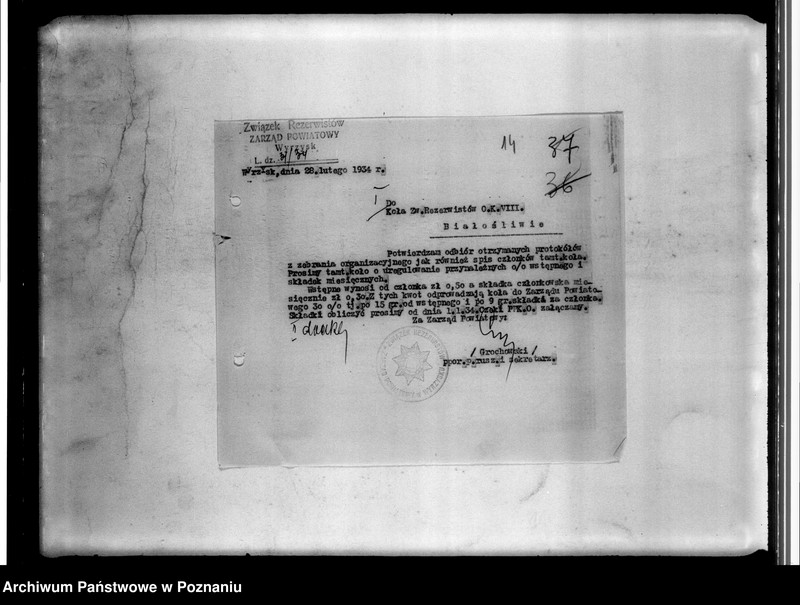 Związek Rezerwistów
ZARZĄD POWIATOWY
Wyrzysk
L. dz. 31/34
Wyrzysk, dnia 28.lutego 1934 r.
14 37
36
I
Do
Koła Zw.Rezerwistów O.K.VIII.
Białośliwie
Potwierdzam odbiór otrzymanych protokółów
z zebrania organizacyjnego jak również spis członków tamt.koła.
Prosimy tamt.koło o uregulowanie przynależnych o/o wstępnego i
składek miesięcznych.
Wstępne wynosi od członka zł 0,50 a składka członkowska mie-
sięcznie zł 0,30.Z tych kwot odprowadzają koła do Zarządu Powiato-
wego 30 o/o tj.po 15 gr.od wstępnego i po 9 gr.składki za członka.
Składki obliczyć prosimy od dnia 1.1.34.Czeki P.K.O. załączamy.
Za Zarząd Powiatowy:
I
/ Grochowski /
ppor.p.rusz.i sekretarz.
Archiwum Państwowe w Poznaniu